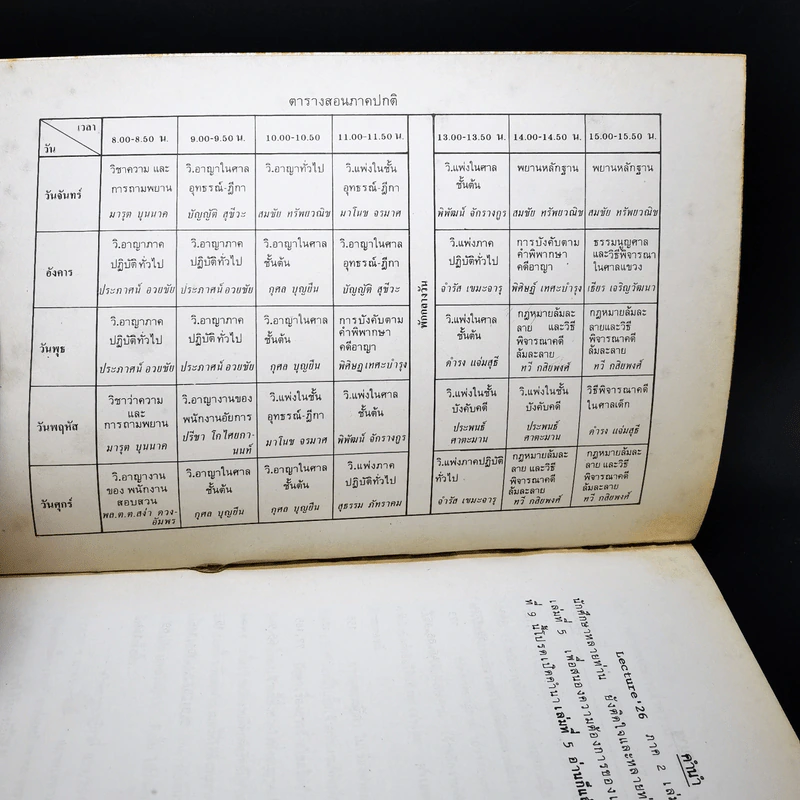 ตารางสอนภาคปกติ
เวลา
วัน
8.00-8.50 น.
9.00-9.50 น.
10.00-10.50
11.00-11.50 น.
13.00-13.50 น.
14.00-14.50 น.
15.00-15.50 น.
พักกลางวัน
วันจันทร์
วิชาความ และ
การถามพยาน
มารุต บุนนาค
วิ.อาญาในศาล
อุทธรณ์-ฎีกา
บัญญัติ สุชีวะ
วิ.อาญาทั่วไป
สมชัย ทรัพยวณิช
วิ.แพ่งในชั้น
อุทธรณ์-ฎีกา
มาโนช จรมาศ
วิ.แพ่งในศาล
ชั้นต้น
พิพัฒน์ จักรางกูร
พยานหลักฐาน
สมชัย ทรัพยวณิช
พยานหลักฐาน
สมชัย ทรัพยวณิช
อังคาร
วิ.อาญาภาค
ปฏิบัติทั่วไป
ประกาศน์ อวยชัย
วิ.อาญาภาค
ปฏิบัติทั่วไป
ประกาศน์ อวยชัย
วิ.อาญาในศาล
ชั้นต้น
กุศล บุญยืน
วิ.อาญาในศาล
อุทธรณ์-ฎีกา
บัญญัติ สุชีวะ
วิ.แพ่งภาค
ปฏิบัติทั่วไป
จำรัส เขมะจารุ
การบังคับตาม
คำพิพากษา
คดีอาญา
พิศิษฏ์ เทศะบำรุง
ธรรมนูญศาล
และวิธีพิจารณา
ในศาลแขวง
เธียร เจริญวัฒนา
วันพุธ
วิ.อาญาภาค
ปฏิบัติทั่วไป
ประกาศน์ อวยชัย
วิ.อาญาภาค
ปฏิบัติทั่วไป
ประกาศน์ อวยชัย
วิ.อาญาในศาล
ชั้นต้น
กุศล บุญยืน
การบังคับตาม
คำพิพากษา
คดีอาญา
พิศิษฏ เทศะบำรุง
วิ.แพ่งในศาล
ชั้นต้น
ดำรง แจ่มสุธี
กฎหมายล้มละ
ลาย และวิธี
พิจารณาคดี
ล้มละลาย
ทวี กสิยพงศ์
กฎหมายล้มละ
ลายและวิธี
พิจารณาคดี
ล้มละลาย
ทวี กสิยพงศ์
วันพฤหัส
วิชาว่าความ
และ
การถามพยาน
มารุต บุนนาค
วิ.อาญางานของ
พนักงานอัยการ
ปรีชา โกไศยกา-
นนท์
วิ.แพ่งในชั้น
อุทธรณ์-ฎีกา
มาโนช จรมาศ
วิ.แพ่งในศาล
ชั้นต้น
พิพัฒน์ จักรางกูร
วิ.แพ่งในชั้น
บังคับคดี
ประพนธ์
ศาตะมาน
วิ.แพ่งในชั้น
บังคับคดี
ประพนธ์
ศาตะมาน
วิธีพิจารณาคดี
ในศาลเด็ก
ดำรง แจ่มสุธี
วันศุกร์
วิ.อาญางาน
ของ พนักงาน
สอบสวน
พล.ต.ต.สง่า ดวง-
อัมพร
วิ.อาญาในศาล
ชั้นต้น
กุศล บุญยืน
วิ.อาญาในศาล
ชั้นต้น
กุศล บุญยืน
วิ.แพ่งภาค
ปฏิบัติทั่วไป
สุธรรม ภัทราคม
วิ.แพ่งภาคปฏิบัติ
ทั่วไป
จำรัส เขมะจารุ
กฎหมายล้มละ
ลาย และวิธี
พิจารณาคดี
ล้มละลาย
ทวี กสิยพงศ์
กฎหมายล้มละ
ลาย และวิธี
พิจารณาคดี
ล้มละลาย
ทวี กสิยพงศ์
คำนำ
Lecture'26 ภาค 2
นักศึกษาหลายท่าน ยังติดใจและหลาย
เล่มที่ 5 เพื่อสนองความต้องการของ
ที่ 9 นี้โปรดเปิดคำนำเล่มที่ 5 อ่าน